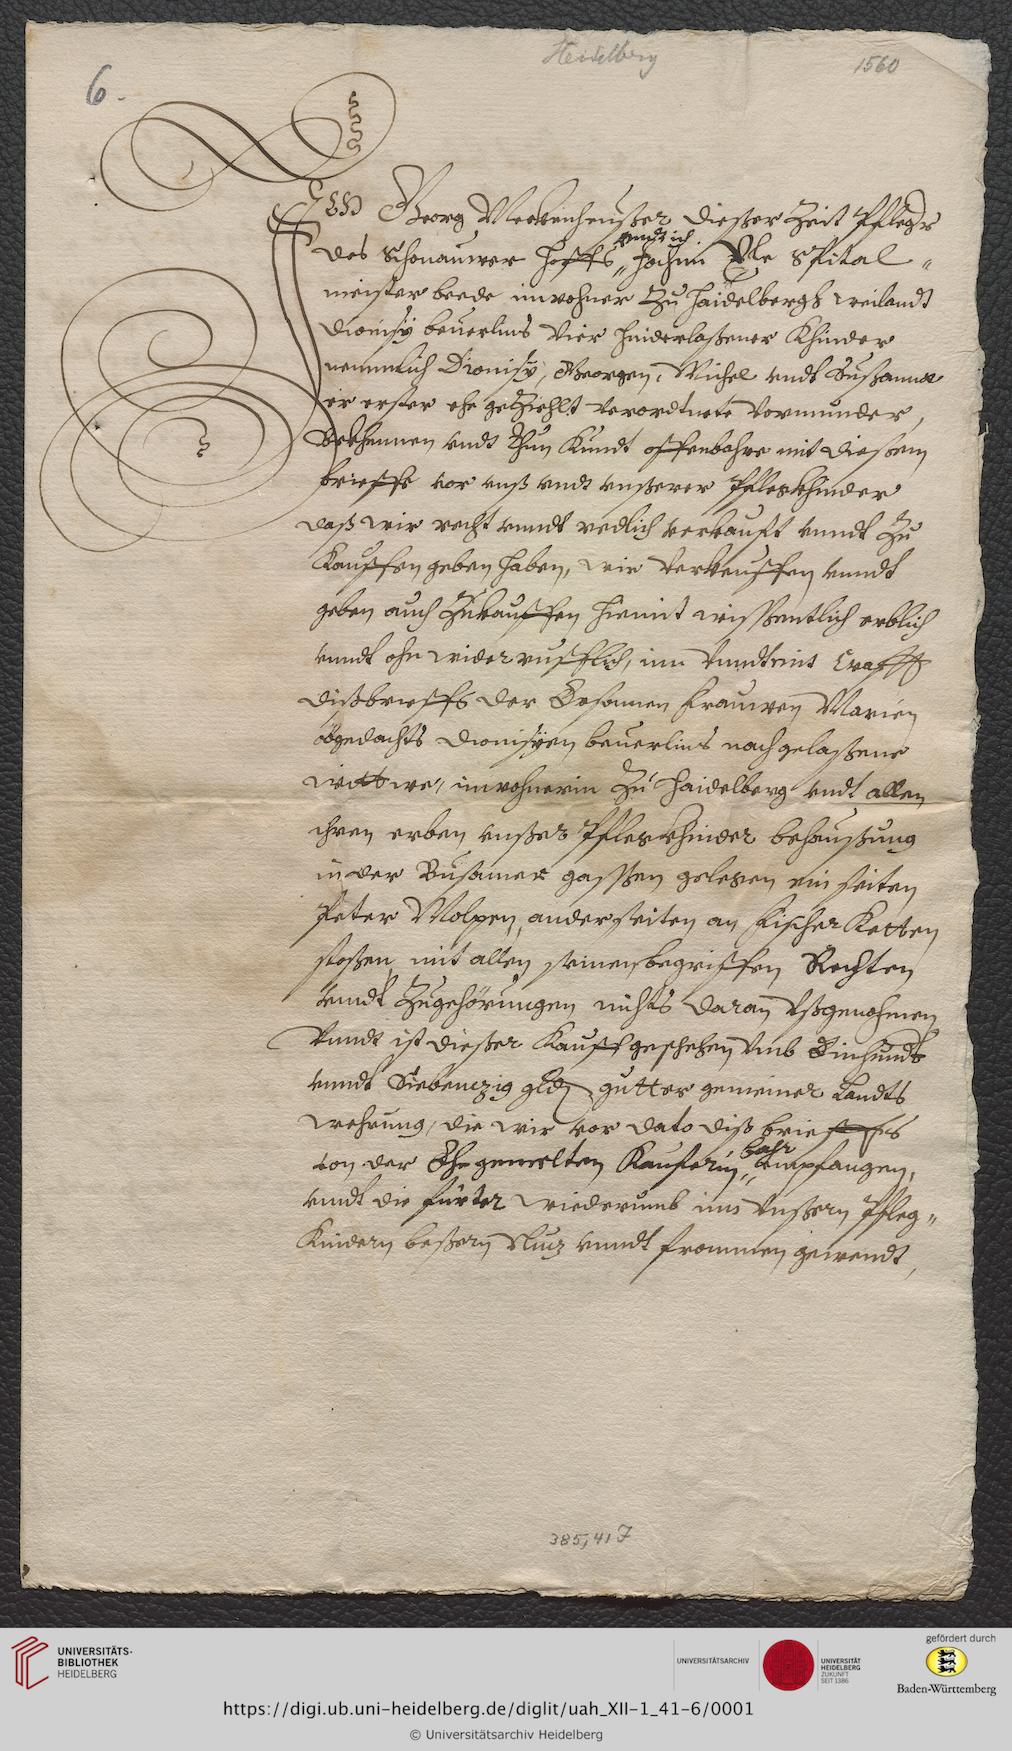 Heidelberg
1560
6.
Ich Georg dießer Zeit Pfleger
des Schonauwer Hoffs, vndt ich Jochim Spital-
meister beede inwohner Zu Haidelbergh weilandt
Dionisÿ beuerlins vier hinderlaßener Khinder
nemmlich Dionisÿ, Georgen, Michel vndt Sußanna
er erster ehe geZiehlt verordtnete Vormunder,
Bekhennen vndt Thun Kundt offenbahre mit dießem
brieffe vor vnß vndt vnßerer Pflegkhinder
daß wir recht vnndt redlich verkaufft vnndt Zu
Kauffen geben haben, wir verkauffen vnndt
geben auch Zukauffen hiemit wissentlich erblich
vnndt ohn widerrufflich, inn Crafft
dißbrieffs der Ersamen frauwen Marien
obgedachts Dionisÿen beuerlins nachgelaßene
wittwe, inwohnerin Zu Haidelberg vndt allen
ihren erben vnßer Pflegkhinder behaußung
in der Bußamer gassßen gelegen ein seiten
Peter anderseiten an fischer Ketten
stoßen, mit allen begriffen Rechten
vnndt Zugehörungen nichts daran vßgenohmen
Vnndt ist dießer Kauff geschehen vmb Einhundt
vnndt Siebenczig gld gutter gemeiner Landts
wehrung, die wir vor dato diß brieffes
von der Ehegemelten Kauferin, bahr empfangen,
vnndt die fürter wiederumb inn vnßern Pfleg-
Kindern beßern Nucz vnndt frommen gewendt,
385,417
UNIVERSITÄTS-
BIBLIOTHEK
HEIDELBERG
UNIVERSITÄTSARCHIV
UNIVERSITÄT
HEIDELBERG
ZUKUNFT
SEIT 1386
gefördert durch
Baden-Württemberg
https://digi.ub.uni-heidelberg.de/diglit/uah_XII-1_41-6/0001
© Universitätsarchiv Heidelberg